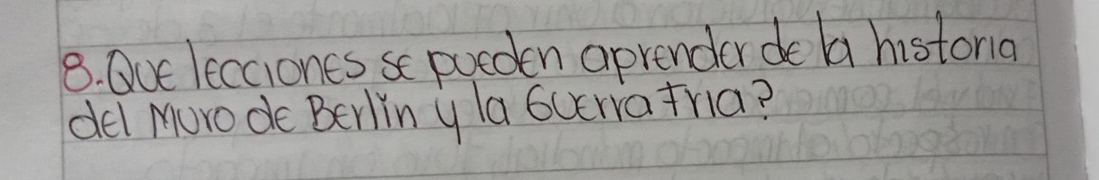 8. Que lecciones se pueden aprender de la historia
del Muro de Berlin y la Guerra fria?